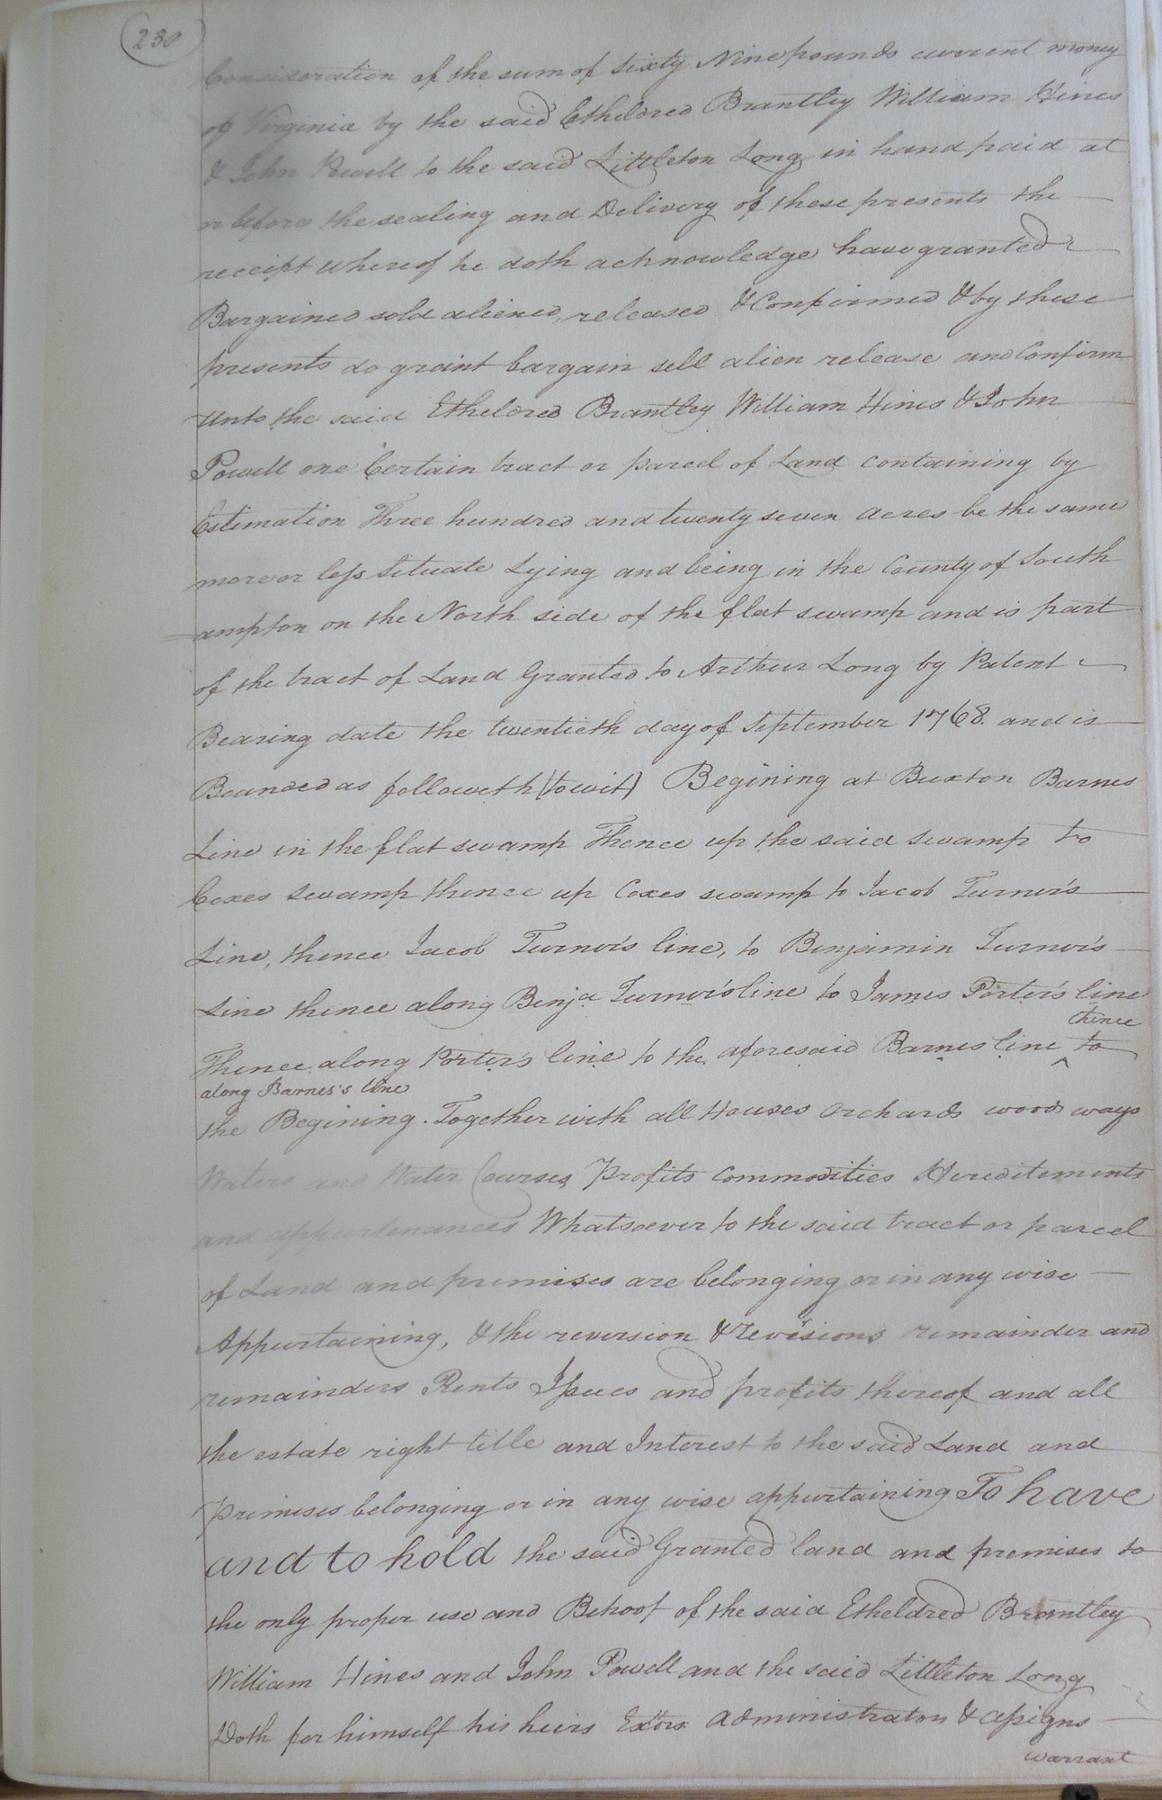 230
Consideration of the sum of Sixty Nine pounds current money
of Virginia by the said Etheldred Brantley William Hines
& John Powell to the said Littleton Long in hand paid at
or before the sealing and Delivery of these presents the
receipt whereof he doth acknowledge have granted
Bargained sold aliened, released & Confirmed & by these
presents do graint bargain sell alien release and Confirm
unto the said Etheldred Brantley William Hines & John
Powell one Certain tract or parcel of Land containing by
Estimation Three hundred and twenty seven acres be the same
more or less Situate Lying and being in the County of South
ampton on the North side of the flat swamp and is part
of the tract of Land Granted to Arthur Long by Patent
Bearing date the twentieth day of September 1768. and is
Bounded as followeth (to wit) Begining at Buxton Barnes
Line in the flat swamp Thence up the said swamp to
Coxes Swamp thence up Coxes swamp to Jacob Turner's
Line, thence Jacob Turner's line, to Benjamin Turner's
Line thence along Benja Turner's line to James Porter's line
Thence along Porter's line to the aforesaid Barnes line ^ thence to
along Barnes's line
the Begining. Together with all Houses Orchards woods ways
Waters and Water Courses, Profits Commodities Hereditements
and appurtenances Whatsoever to the said tract or parcel
of Land and premises are belonging or in any wise
Appurtaining, & the reversion & revisions remainder and
remainders Rents Issues and profits thereof and all
the estate right title and Interest to the said Land and
Primises belonging or in any wise appurtaining To have
and to hold the said Granted land and premises to
the only proper use and Behoof of the said Etheldred Brantley
William Hines and John Powell and the said Littleton Long
Doth for himself his heirs Exors administrators & assigns
warrant